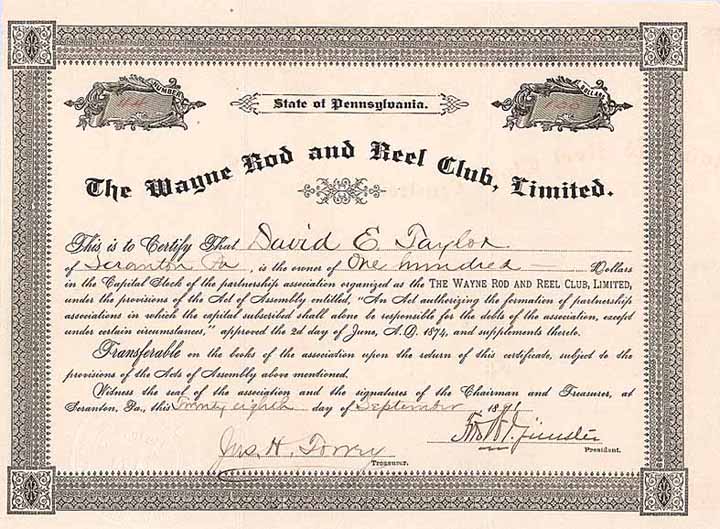 NUMBER
44
State of Pennsylvania.
DOLLARS
100
The Wayne Rod and Reel Club, Limited.
This is to Certify That David E. Taylor
of Scranton Pa, is the owner of One hundred Dollars
in the Capital Stock of the partnership association organized as the THE WAYNE ROD AND REEL CLUB, LIMITED,
under the provisions of the Act of Assembly entitled, "An Act authorizing the formation of partnership
associations in which the capital subscribed shall alone be responsible for the debts of the association, except
under certain circumstances," approved the 2d day of June, A.D. 1874, and supplements thereto.
Transferable on the books of the association upon the return of this certificate, subject to the
provisions of the Acts of Assembly above mentioned.
Witness the seal of the association and the signatures of the Chairman and Treasurer, at
Scranton, Pa., this Twenty eighth day of September 1891
Jas. H. Torrey
Treasurer.
President.